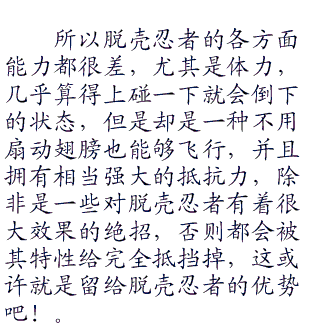 所以脱壳忍者的各方面
能力都很差，尤其是体力，
几乎算得上碰一下就会倒下
的状态，但是却是一种不用
扇动翅膀也能够飞行，并且
拥有相当强大的抵抗力，除
非是一些对脱壳忍者有着很
大效果的绝招，否则都会被
其特性给完全抵挡掉，这或
许就是留给脱壳忍者的优势
吧！。